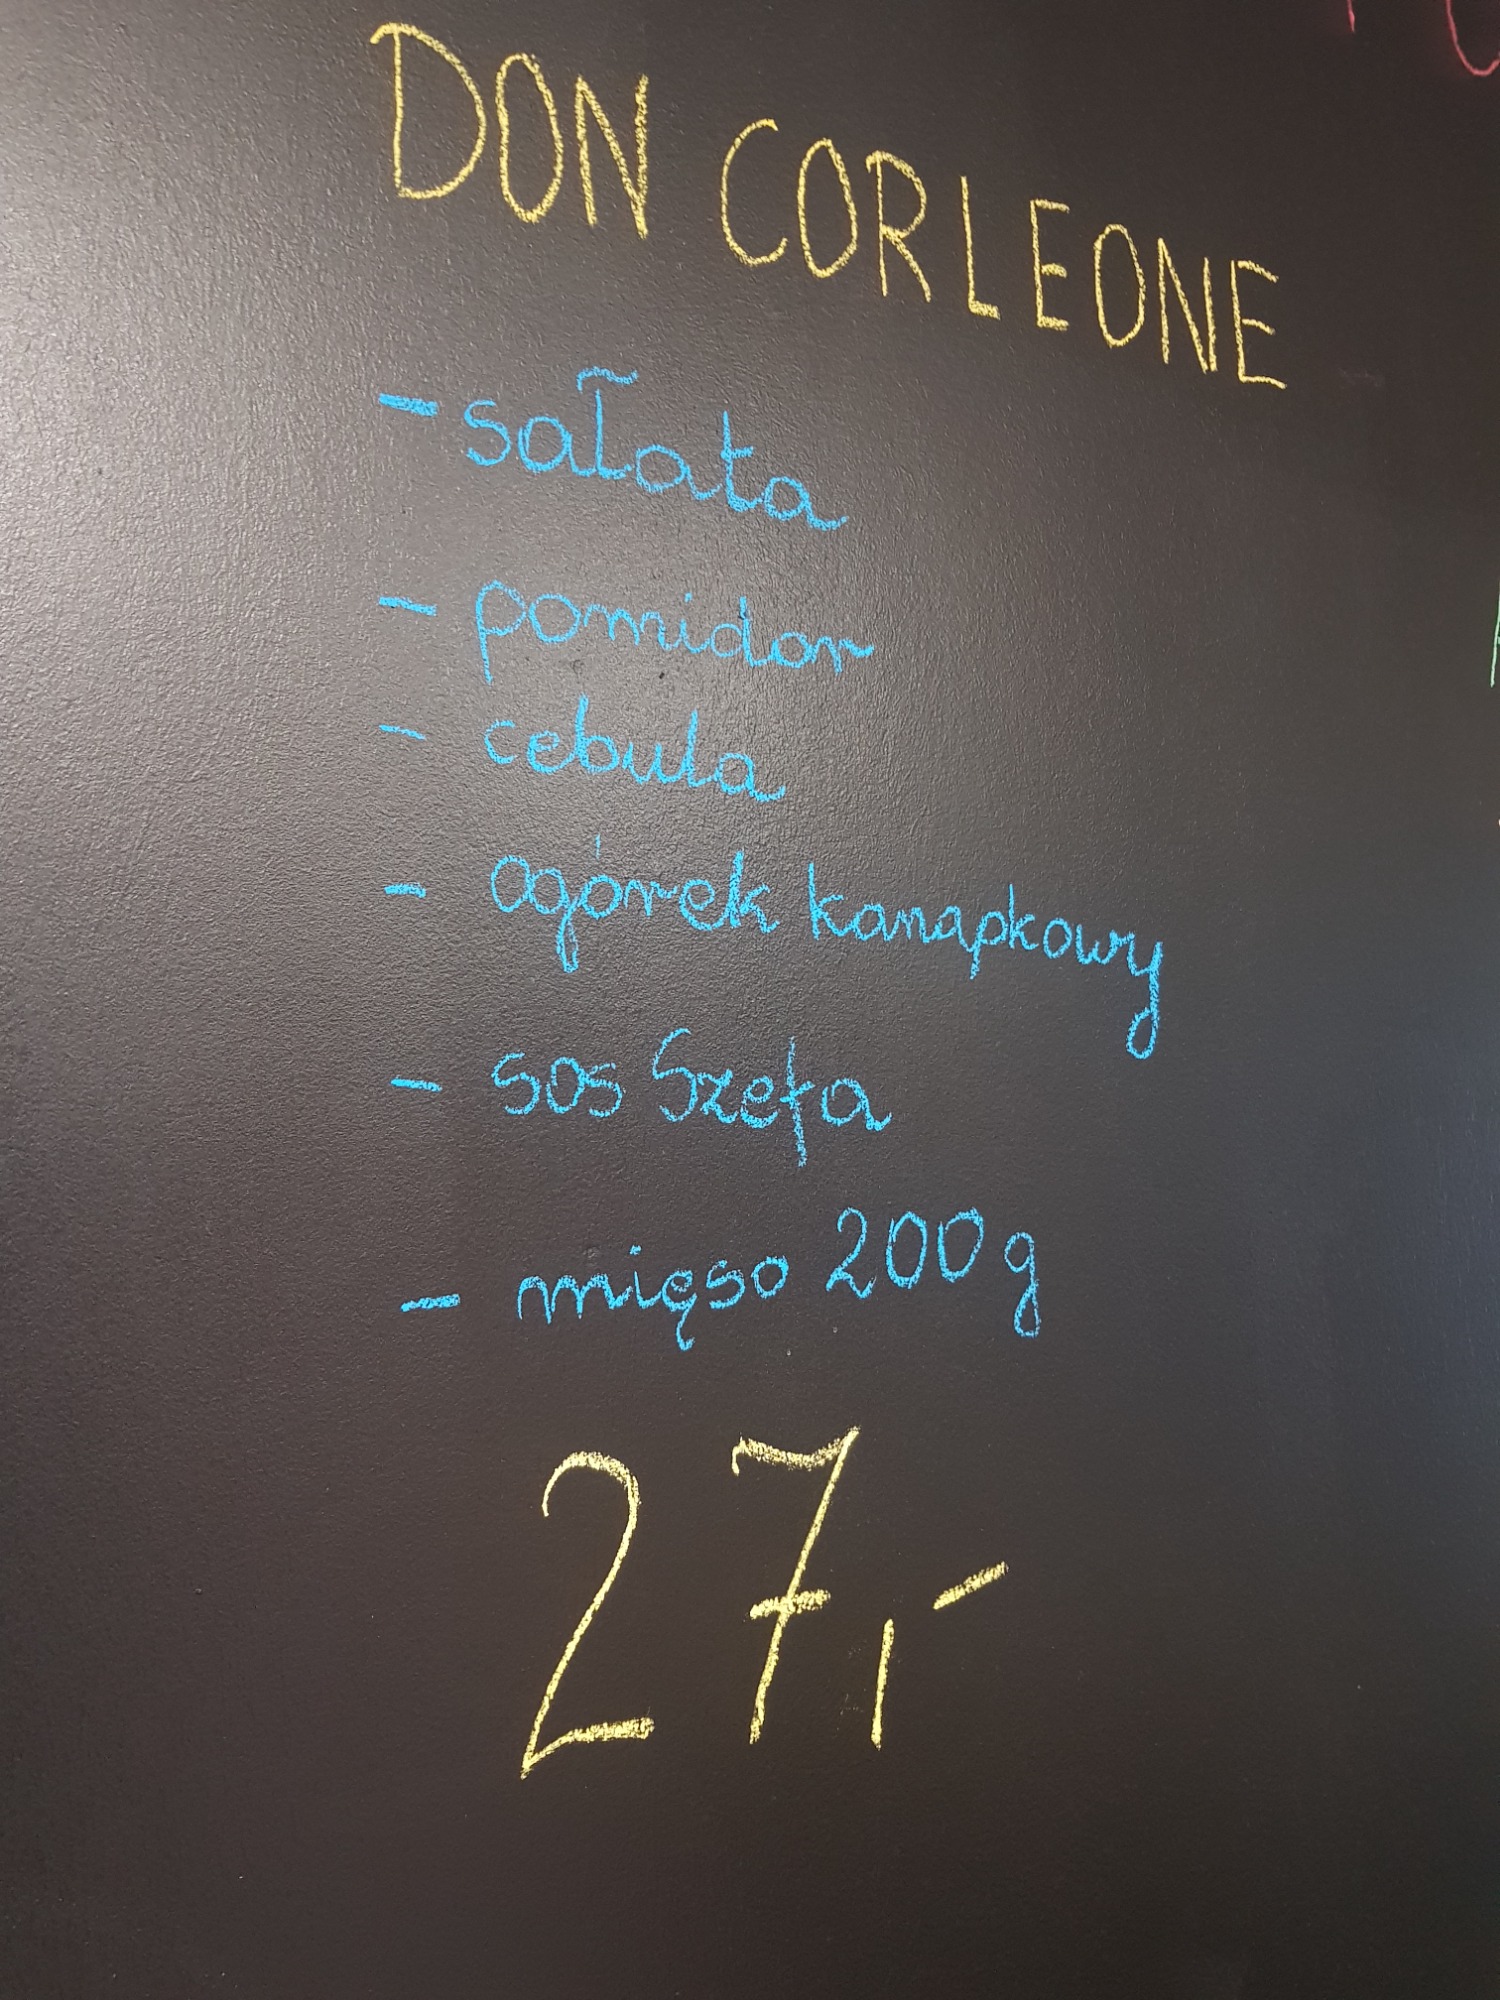 DON CORLEONE
- sałata
- pomidor
- cebula
- ogórek kanapkowy
- sos Szefa
- mięso 200g
27,-